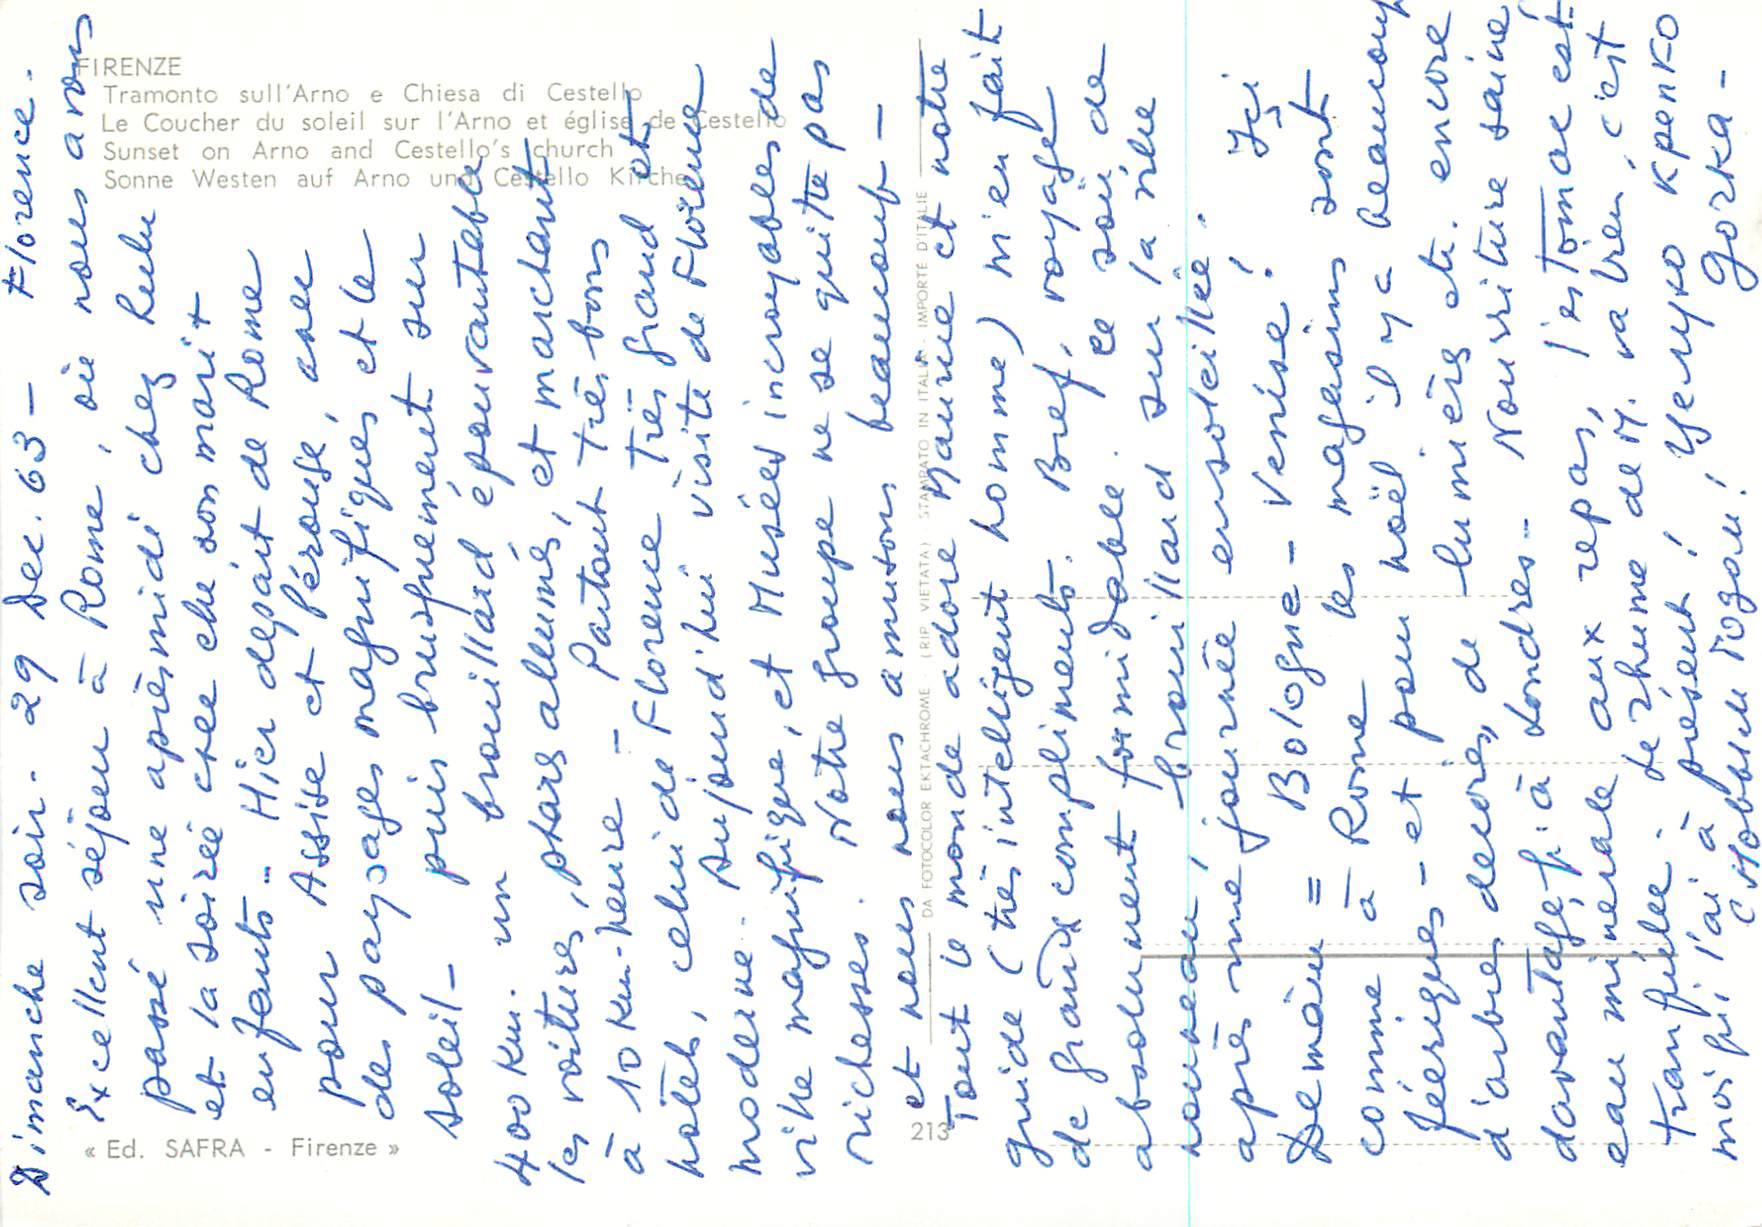 FIRENZE
Tramonto sull'Arno e Chiesa di Cestello
Le Coucher du soleil sur l'Arno et église de Cestello
Sunset on Arno and Cestello's church
Sonne Westen auf Arno und Cestello Kirche
« Ed. SAFRA - Firenze »
213
DA FOTOCOLOR EKTACHROME - (RIP. VIETATA) STAMPATO IN ITALIA - IMPORTÉ D'ITALIE
Dimanche soir - 29 Dec. 63 - Florence.
Excellent séjour à Rome, où nous avons
passé une après midi chez Lulu
et la soirée avec elle son mari +
enfants - Hier départ de Rome
pour Assise et Pérouse, avec
des paysages magnifiques et le
soleil - puis brusquement sur
400 km. un brouillard épouvantable
les voitures, phares allumés, et marchant
à 10 km-heure - Partout très bons
hôtels, celui de Florence très grand et
moderne. Aujourd'hui visite de Florence
ville magnifique, et Musées incroyables de
richesses. Notre groupe ne se quitte pas
et nous nous amusons beaucoup -
Tout le monde adore Maurice et notre
guide (très intelligent homme) m'en fait
de grands compliments. Bref, voyage
absolument formidable. Ce soir de
nouveau, brouillard sur la ville
après une journée ensoleillée.
Demain = Bologne - Venise! Ici
comme à Rome les magasins sont
féeriques - et pour Noël il y a beaucoup
d'arbres décorés, de lumières etc. encore
davantage qu'à Londres - Nourriture saine
eau minérale aux repas, l'estomac est
tranquille. Le rhume de M. va bien, c'est
moi qui l'ai à présent! Целую крепко
С Новым годом! Gorka -